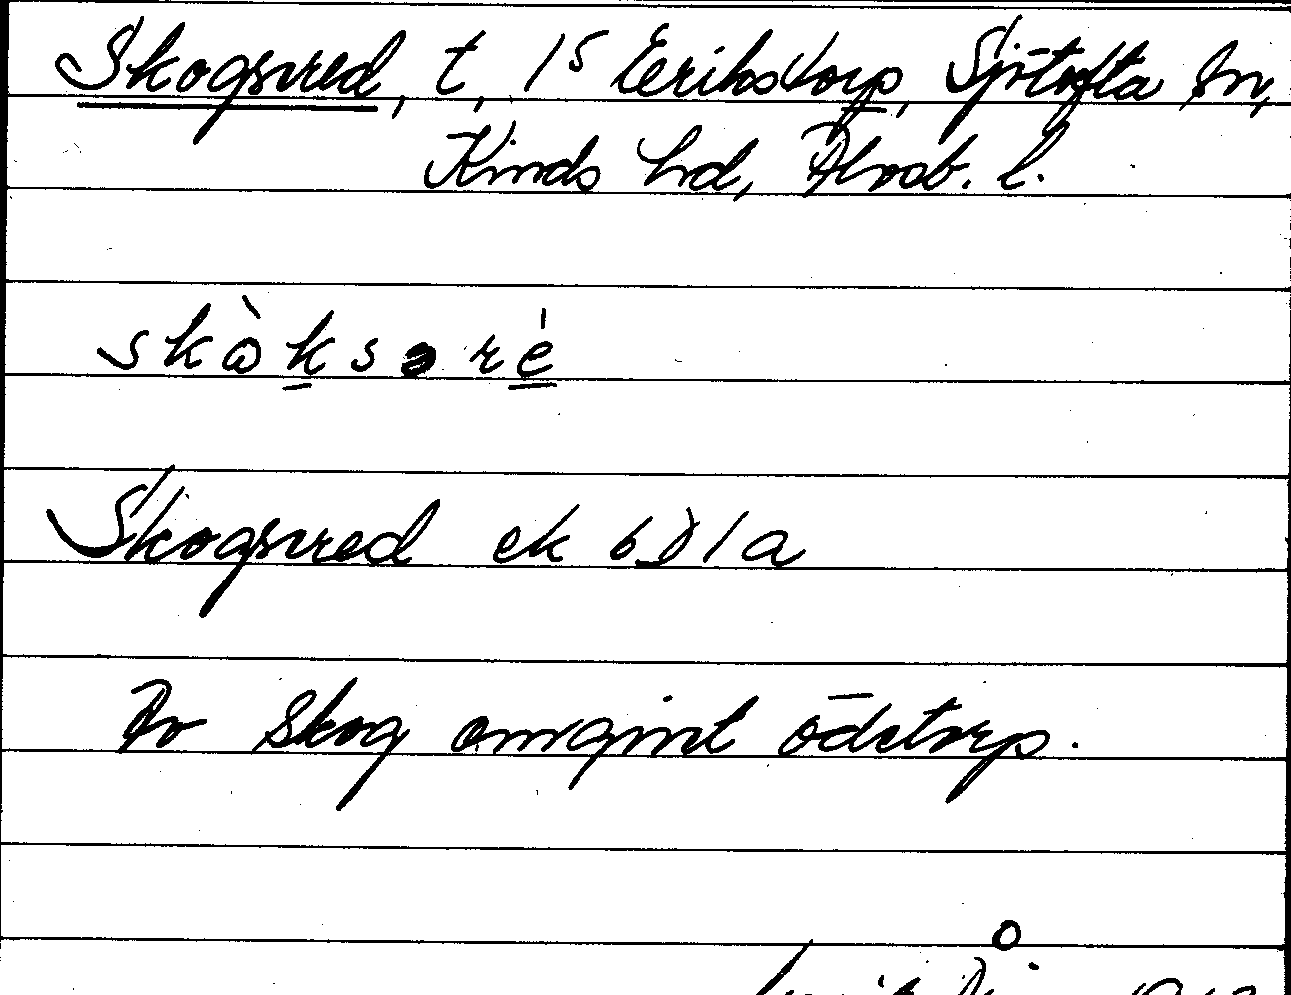 Skogsvred, t, 1⁵ Eerikstorp, Sjötofta sn,
Kinds hd, Älvsb. l.
skòksəré
Skogsvred ek 6D1a
Av skog omgivet ödetorp.